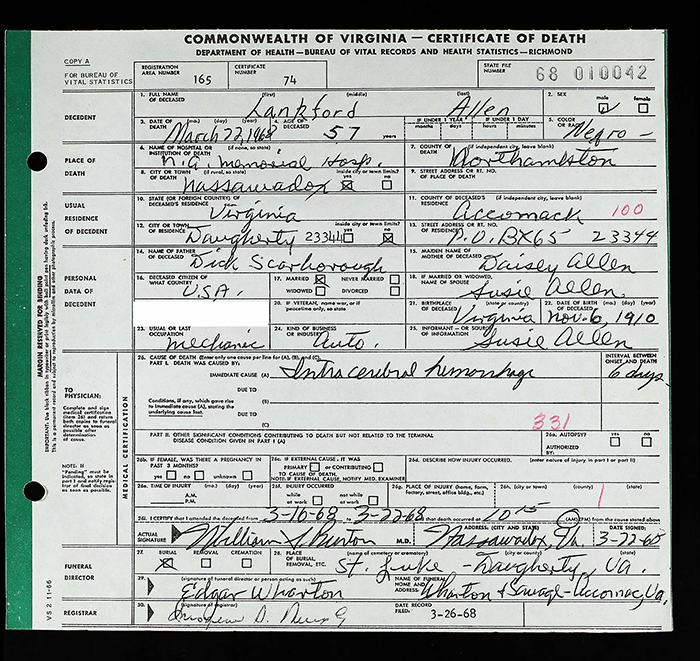 COMMONWEALTH OF VIRGINIA — CERTIFICATE OF DEATH
DEPARTMENT OF HEALTH—BUREAU OF VITAL RECORDS AND HEALTH STATISTICS—RICHMOND
COPY A
FOR BUREAU OF VITAL STATISTICS
REGISTRATION AREA NUMBER 165 CERTIFICATE NUMBER 74 STATE FILE NUMBER 68 010042
DECEDENT
1. FULL NAME OF DECEASED (first) (middle) (last) Lankford Allen
2. SEX male female
3. DATE OF DEATH (mo.) (day) (year) March 22, 1968
4. AGE OF DECEASED 57 years
IF UNDER 1 YEAR months days IF UNDER 1 DAY hours minutes
5. COLOR OR RACE Negro –
PLACE OF DEATH
6. NAME OF HOSPITAL OR INSTITUTION OF DEATH (if none, so state) N.A. Memorial Hosp.
7. COUNTY OF DEATH (if independent city, leave blank) Northamkton
8. CITY OR TOWN OF DEATH (if rural, so state) Inside city or town limits? yes no Nassawadox
9. STREET ADDRESS OR RT. NO. OF PLACE OF DEATH
USUAL RESIDENCE OF DECEDENT
10. STATE (OR FOREIGN COUNTRY) OF DECEASED'S RESIDENCE Virginia
11. COUNTY OF DECEASED'S RESIDENCE (if independent city, leave blank) Accomack 100
12. CITY OR TOWN OF RESIDENCE inside city or town limits? yes no Daugherty 23344
13. STREET ADDRESS OR RT. NO. OF RESIDENCE P.O. BX65 23344
PERSONAL DATA OF DECEDENT
14. NAME OF FATHER OF DECEASED Dick Scarborough
15. MAIDEN NAME OF MOTHER Daisey Allen
16. CITIZEN OF WHAT COUNTRY U.S.A.
17. MARRIED NEVER MARRIED WIDOWED DIVORCED
18. IF MARRIED OR WIDOWED NAME OF SPOUSE Susie Allen
20. IF VETERAN, name war, or if peacetime only, so state
21. BIRTHPLACE OF DECEASED (state or country) Virginia
22. DATE OF BIRTH OF DECEASED (mo.) (day) (year) Nov. 6, 1910
23. USUAL OR LAST OCCUPATION mechanic
24. KIND OF BUSINESS OR INDUSTRY Auto.
25. INFORMANT - OR SOURCE OF INFORMATION Susie Allen
MARGIN RESERVED FOR BINDING
TO PHYSICIAN:
Complete and sign medical certification (item 26) and return both copies to funeral director as soon as possible after determination of cause.
NOTE: If "Pending" must be indicated, so state in part 1 and notify registrar of final decision as soon as possible.
MEDICAL CERTIFICATION
26. CAUSE OF DEATH (Enter only one cause per line for (A), (B), and (C))
PART I. DEATH WAS CAUSED BY:
INTERVAL BETWEEN ONSET AND DEATH
IMMEDIATE CAUSE (A) Intracerebral hemorrhage 6 days
DUE TO
Conditions, if any, which gave rise to immediate cause (A), stating the underlying cause last.
(B)
DUE TO
(C) 331
PART II. OTHER SIGNIFICANT CONDITIONS CONTRIBUTING TO DEATH BUT NOT RELATED TO THE TERMINAL DISEASE CONDITION GIVEN IN PART I (A)
26a. AUTOPSY? yes no
AUTHORIZED BY:
26b. IF FEMALE, WAS THERE A PREGNANCY IN PAST 3 MONTHS? yes no unknown
26c. IF EXTERNAL CAUSE, IT WAS PRIMARY or CONTRIBUTING TO CAUSE OF DEATH.
NOTE: IF EXTERNAL CAUSE, NOTIFY MED. EXAMINER
26d. DESCRIBE HOW INJURY OCCURRED. (enter nature of injury in part I or part II)
26e. TIME OF INJURY (mo.) (day) (year) A.M. P.M.
26f. INJURY OCCURRED while at work not while at work
26g. PLACE OF INJURY (home, farm, factory, street, office bldg., etc.)
26h. (city or town) (county) (state)
1
26i. I CERTIFY that I attended the deceased from 3-16-68 3-22-68 that death occurred at 10 15 (AM)(PM) from the cause stated above
ACTUAL SIGNATURE William J. Burton M.D. ADDRESS: (CITY AND STATE) Nassawadox, Va. DATE SIGNED: 3-22-68
FUNERAL DIRECTOR
27. BURIAL REMOVAL CREMATION
28. PLACE OF BURIAL, REMOVAL, ETC. (name of cemetery or crematory) (city or county) (state) St. Luke – Daugherty, Va.
29. (signature of funeral director or person acting as such) Edgar Wharton
NAME OF FUNERAL HOME AND ADDRESS: Wharton & Savage - Accomac, Va.
REGISTRAR
30. (signature of registrar)
DATE RECORD FILED: 3-26-68
VS 2 11-66